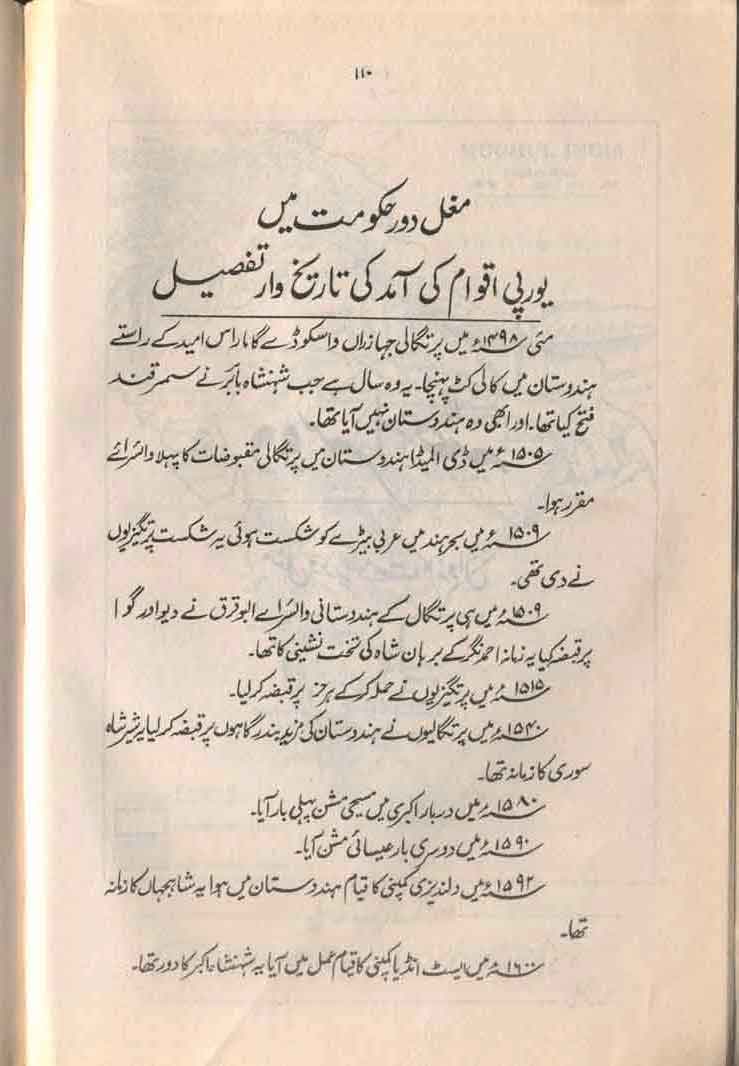 ۱۱۰
مغل دور حکومت میں
یورپی اقوام کی آمد کی تاریخ وار تفصیل
مئی ۱۳۹۸ء میں پرتگالی جہازراں واسکوڈے گاما راس امید کے راستے
ہندوستان میں کالی کٹ پہنچا۔ یہ وہ سال ہے جب شہنشاہ بابُر نے سمرقند
فتح کیا تھا۔ اور ابھی وہ ہندوستان نہیں آیا تھا۔
۱۵۰۵ء میں ڈی المیڈا ہندوستان میں پرتگالی مقبوضات کا پہلا وائسرائے
مقرر ہوا۔
۱۵۰۹ء میں بحر ہند میں عربی بیڑے کو شکست ہوئی یہ شکست پرتگیزیوں
نے دی تھی۔
۱۵۰۹ء میں ہی پرتگال کے ہندوستانی وائسراے ابوقرق نے دیو اور گوا
پر قبضہ کیا یہ زمانہ احمد نگر کے برہان شاہ کی تخت نشینی کا تھا۔
۱۵۱۵ء میں پرتگیزیوں نے حملہ کرکے ہرمز پر قبضہ کرلیا۔
۱۵۴۰ء میں پرتگالیوں نے ہندوستان کی مزید بندرگاہوں پر قبضہ کرلیا یہ شیر شاہ
سوری کا زمانہ تھا۔
۱۵۸۰ء میں دربار اکبری میں مسیحی مشن پہلی بار آیا۔
۱۵۹۰ء میں دوسری بار عیسائی مشن آیا۔
۱۵۹۲ء میں ولندیزی کمپنی کا قیام ہندوستان میں ہوا یہ شاہجہاں کا زمانہ
تھا۔
۱۶۰۰ء میں ایسٹ انڈیا کمپنی کا قیام عمل میں آیا یہ شہنشاہ اکبر کا دور تھا۔